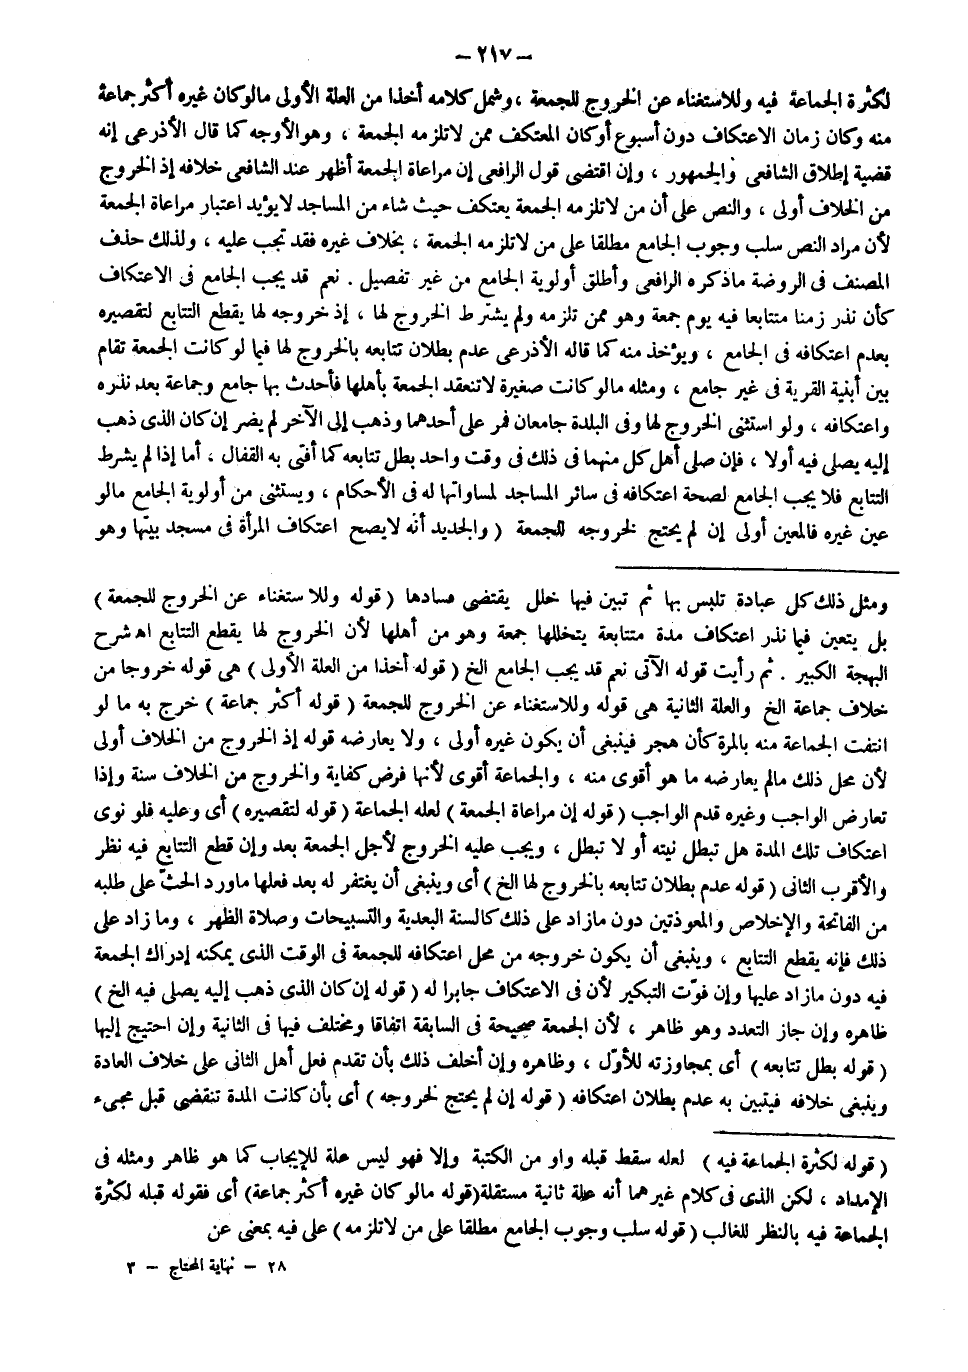 — ٢١٧ —
لكثرة الجماعة فيه وللاستغناء عن الخروج للجمعة ، وشمل كلامه أخذا من العلة الأولى مالوكان غيره أكثر جماعة
منه وكان زمان الاعتكاف دون أسبوع أوكان المعتكف ممن لاتلزمه الجمعة ، وهو الأوجه كما قال الأذرعى إنه
قضية إطلاق الشافعى والجمهور ، وإن اقتضى قول الرافعى إن مراعاة الجمعة أظهر عند الشافعى خلافه إذ الخروج
من الخلاف أولى ، والنص على أن من لاتلزمه الجمعة يعتكف حيث شاء من المساجد لايؤيد اعتبار مراعاة الجمعة
لأن مراد النص سلب وجوب الجامع مطلقا على من لاتلزمه الجمعة ، بخلاف غيره فقد تجب عليه ، ولذلك حذف
المصنف فى الروضة ماذكره الرافعى وأطلق أولوية الجامع من غير تفصيل . نعم قد يجب الجامع فى الاعتكاف
كأن نذر زمنا متتابعا فيه يوم جمعة وهو ممن تلزمه ولم يشترط الخروج لها ، إذ خروجه لها يقطع التتابع لتقصيره
بعدم اعتكافه فى الجامع ، ويؤخذ منه كما قاله الأذرعى عدم بطلان تتابعه بالخروج لها فيما لوكانت الجمعة تقام
بين أبنية القرية فى غير جامع ، ومثله مالوكانت صغيرة لاتنعقد الجمعة بأهلها فأحدث بها جامع وجماعة بعد نذره
واعتكافه ، ولو استثنى الخروج لها وفى البلدة جامعان فمر على أحدهما وذهب إلى الآخر لم يضر إن كان الذى ذهب
إليه يصلى فيه أولا ، فإن صلى أهل كل منهما فى ذلك فى وقت واحد بطل تتابعه كما أفتى به القفال ، أما إذا لم يشرط
التتابع فلا يجب الجامع لصحة اعتكافه فى سائر المساجد لمساواتها له فى الأحكام ، ويستثنى من أولوية الجامع مالو
عين غيره فالمعين أولى إن لم يحتج لخروجه للجمعة ( والجديد أنه لايصح اعتكاف المرأة فى مسجد بيتها وهو
ومثل ذلك كل عبادة تلبس بها ثم تبين فيها خلل يقتضى فسادها ( قوله وللاستغناء عن الخروج للجمعة )
بل يتعين فيما نذر اعتكاف مدة متتابعة يتخللها جمعة وهو من أهلها لأن الخروج لها يقطع التتابع اه شرح
البهجة الكبير . ثم رأيت قوله الآتى نعم قد يجب الجامع الخ ( قوله أخذا من العلة الأولى ) هى قوله خروجا من
خلاف جماعة الخ والعلة الثانية هى قوله وللاستغناء عن الخروج للجمعة ( قوله أكثر جماعة ) خرج به ما لو
انتفت الجماعة منه بالمرة كأن هجر فينبغى أن يكون غيره أولى ، ولا يعارضه قوله إذ الخروج من الخلاف أولى
لأن محل ذلك مالم يعارضه ما هو أقوى منه ، والجماعة أقوى لأنها فرض كفاية والخروج من الخلاف سنة وإذا
تعارض الواجب وغيره قدم الواجب ( قوله إن مراعاة الجمعة ) لعله الجماعة ( قوله لتقصيره ) أى وعليه فلو نوى
اعتكاف تلك المدة هل تبطل نيته أو لا تبطل ، ويجب عليه الخروج لأجل الجمعة بعد وإن قطع التتابع فيه نظر
والأقرب الثانى ( قوله عدم بطلان تتابعه بالخروج لها الخ ) أى وينبغى أن يغتفر له بعد فعلها ماورد الحث على طلبه
من الفاتحة والإخلاص والمعوذتين دون مازاد على ذلك كالسنة البعدية والتسبيحات وصلاة الظهر ، وما زاد على
ذلك فإنه يقطع التتابع ، وينبغى أن يكون خروجه من محل اعتكافه للجمعة فى الوقت الذى يمكنه إدراك الجمعة
فيه دون مازاد عليها وإن فوّت التبكير لأن فى الاعتكاف جابرا له ( قوله إن كان الذى ذهب إليه يصلى فيه الخ )
ظاهره وإن جاز التعدد وهو ظاهر ، لأن الجمعة صحيحة فى السابقة اتفاقا ومختلف فيها فى الثانية وإن احتيج إليها
( قوله بطل تتابعه ) أى بمجاوزته للأوّل ، وظاهره وإن أخلف ذلك بأن تقدم فعل أهل الثانى على خلاف العادة
وينبغى خلافه فيتبين به عدم بطلان اعتكافه ( قوله إن لم يحتج لخروجه ) أى بأن كانت المدة تنقضى قبل مجىء
( قوله لكثرة الجماعة فيه ) لعله سقط قبله واو من الكتبة وإلا فهو ليس علة للإيجاب كما هو ظاهر ومثله فى
الإمداد ، لكن الذى فى كلام غيرهما أنه علة ثانية مستقلة(قوله مالو كان غيره أكثر جماعة) أى فقوله قبله لكثرة
الجماعة فيه بالنظر للغالب ( قوله سلب وجوب الجامع مطلقا على من لاتلزمه ) على فيه بمعنى عن
٢٨ — نهاية المحتاج — ٣